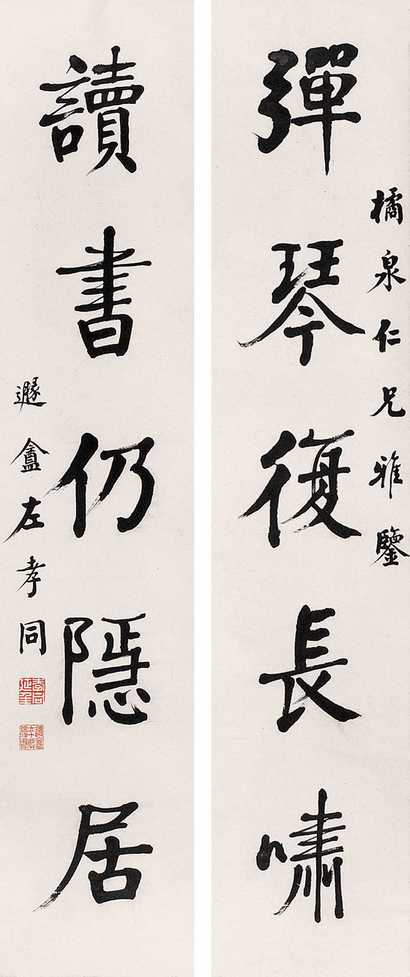 橘泉仁兄雅鑒
彈琴復長嘯
讀書仍隱居
遯盦左孝同